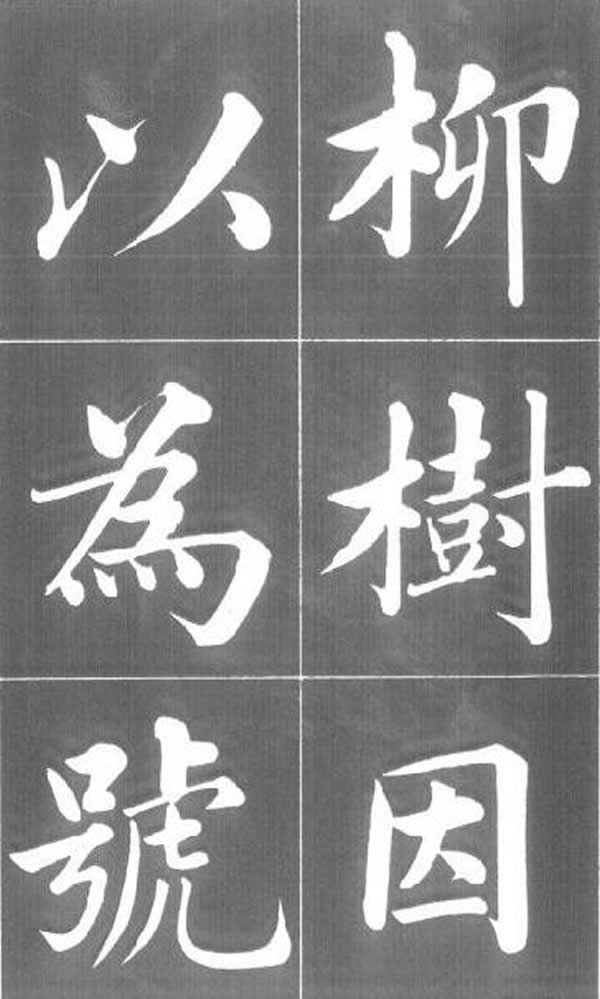 柳樹因
以為號